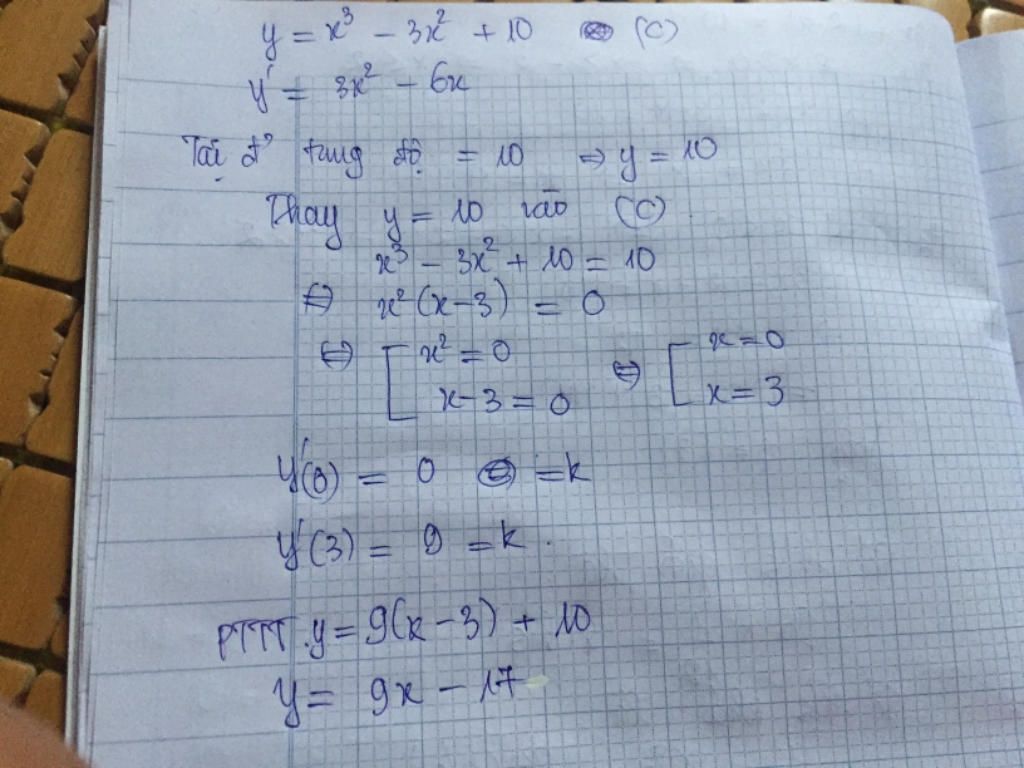 y = x³ - 3x² + 10 (C)
y' = 3x² - 6x
Tại đ' tung độ = 10 ⇒ y = 10
Thay y = 10 vào (C)
x³ - 3x² + 10 = 10
⇔ x²(x-3) = 0
⇔ [ x² = 0 ⇔ [ x = 0
x-3 = 0 x = 3
y'(0) = 0 = k
y'(3) = 9 = k.
PTTT. y = 9(x-3) + 10
y = 9x - 17